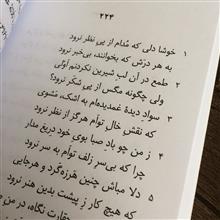 ۲۲۴
۱ خوشا دلی که مُدام از پیِ نظر نرود
به هر دَرَش که بخوانند، بی‌خبر نرود
۲ طمع در آن لب شیرین نکردنم اولیٰ
ولی چگونه مگس از پیِ شکر نرود؟
۳ سوادِ دیدهٔ غمدیده‌ام به اشک، مَشوی
که نقشِ خالِ توأم هرگز از نظر نرود
۴ ز من چو بادِ صبا بویِ خود دریغ مدار
چرا که بی‌سرِ زلف توأم به سر نرود
۵ دلا مباش چنین هرزه‌گرد و هرجایی
که هیچ کار ز پیشت بدین هنر نرود
حقارت نگاه، در من